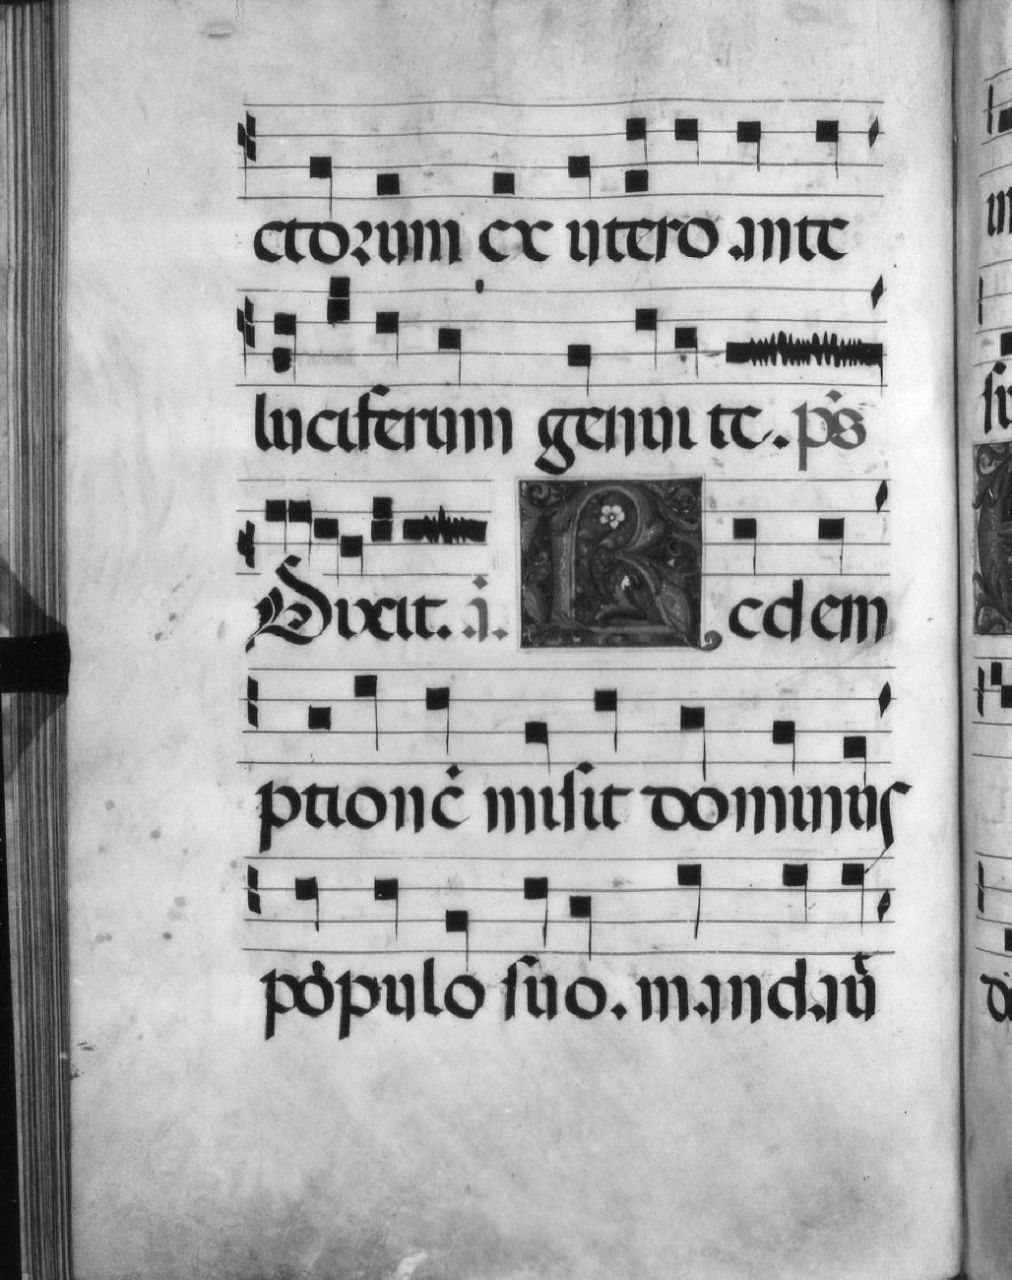 ctorum ex utero ante
luciferum genui te. p̄s
Dixit. a̅. Redem
ptionē misit dominus
pópulo suo. mandauͭ